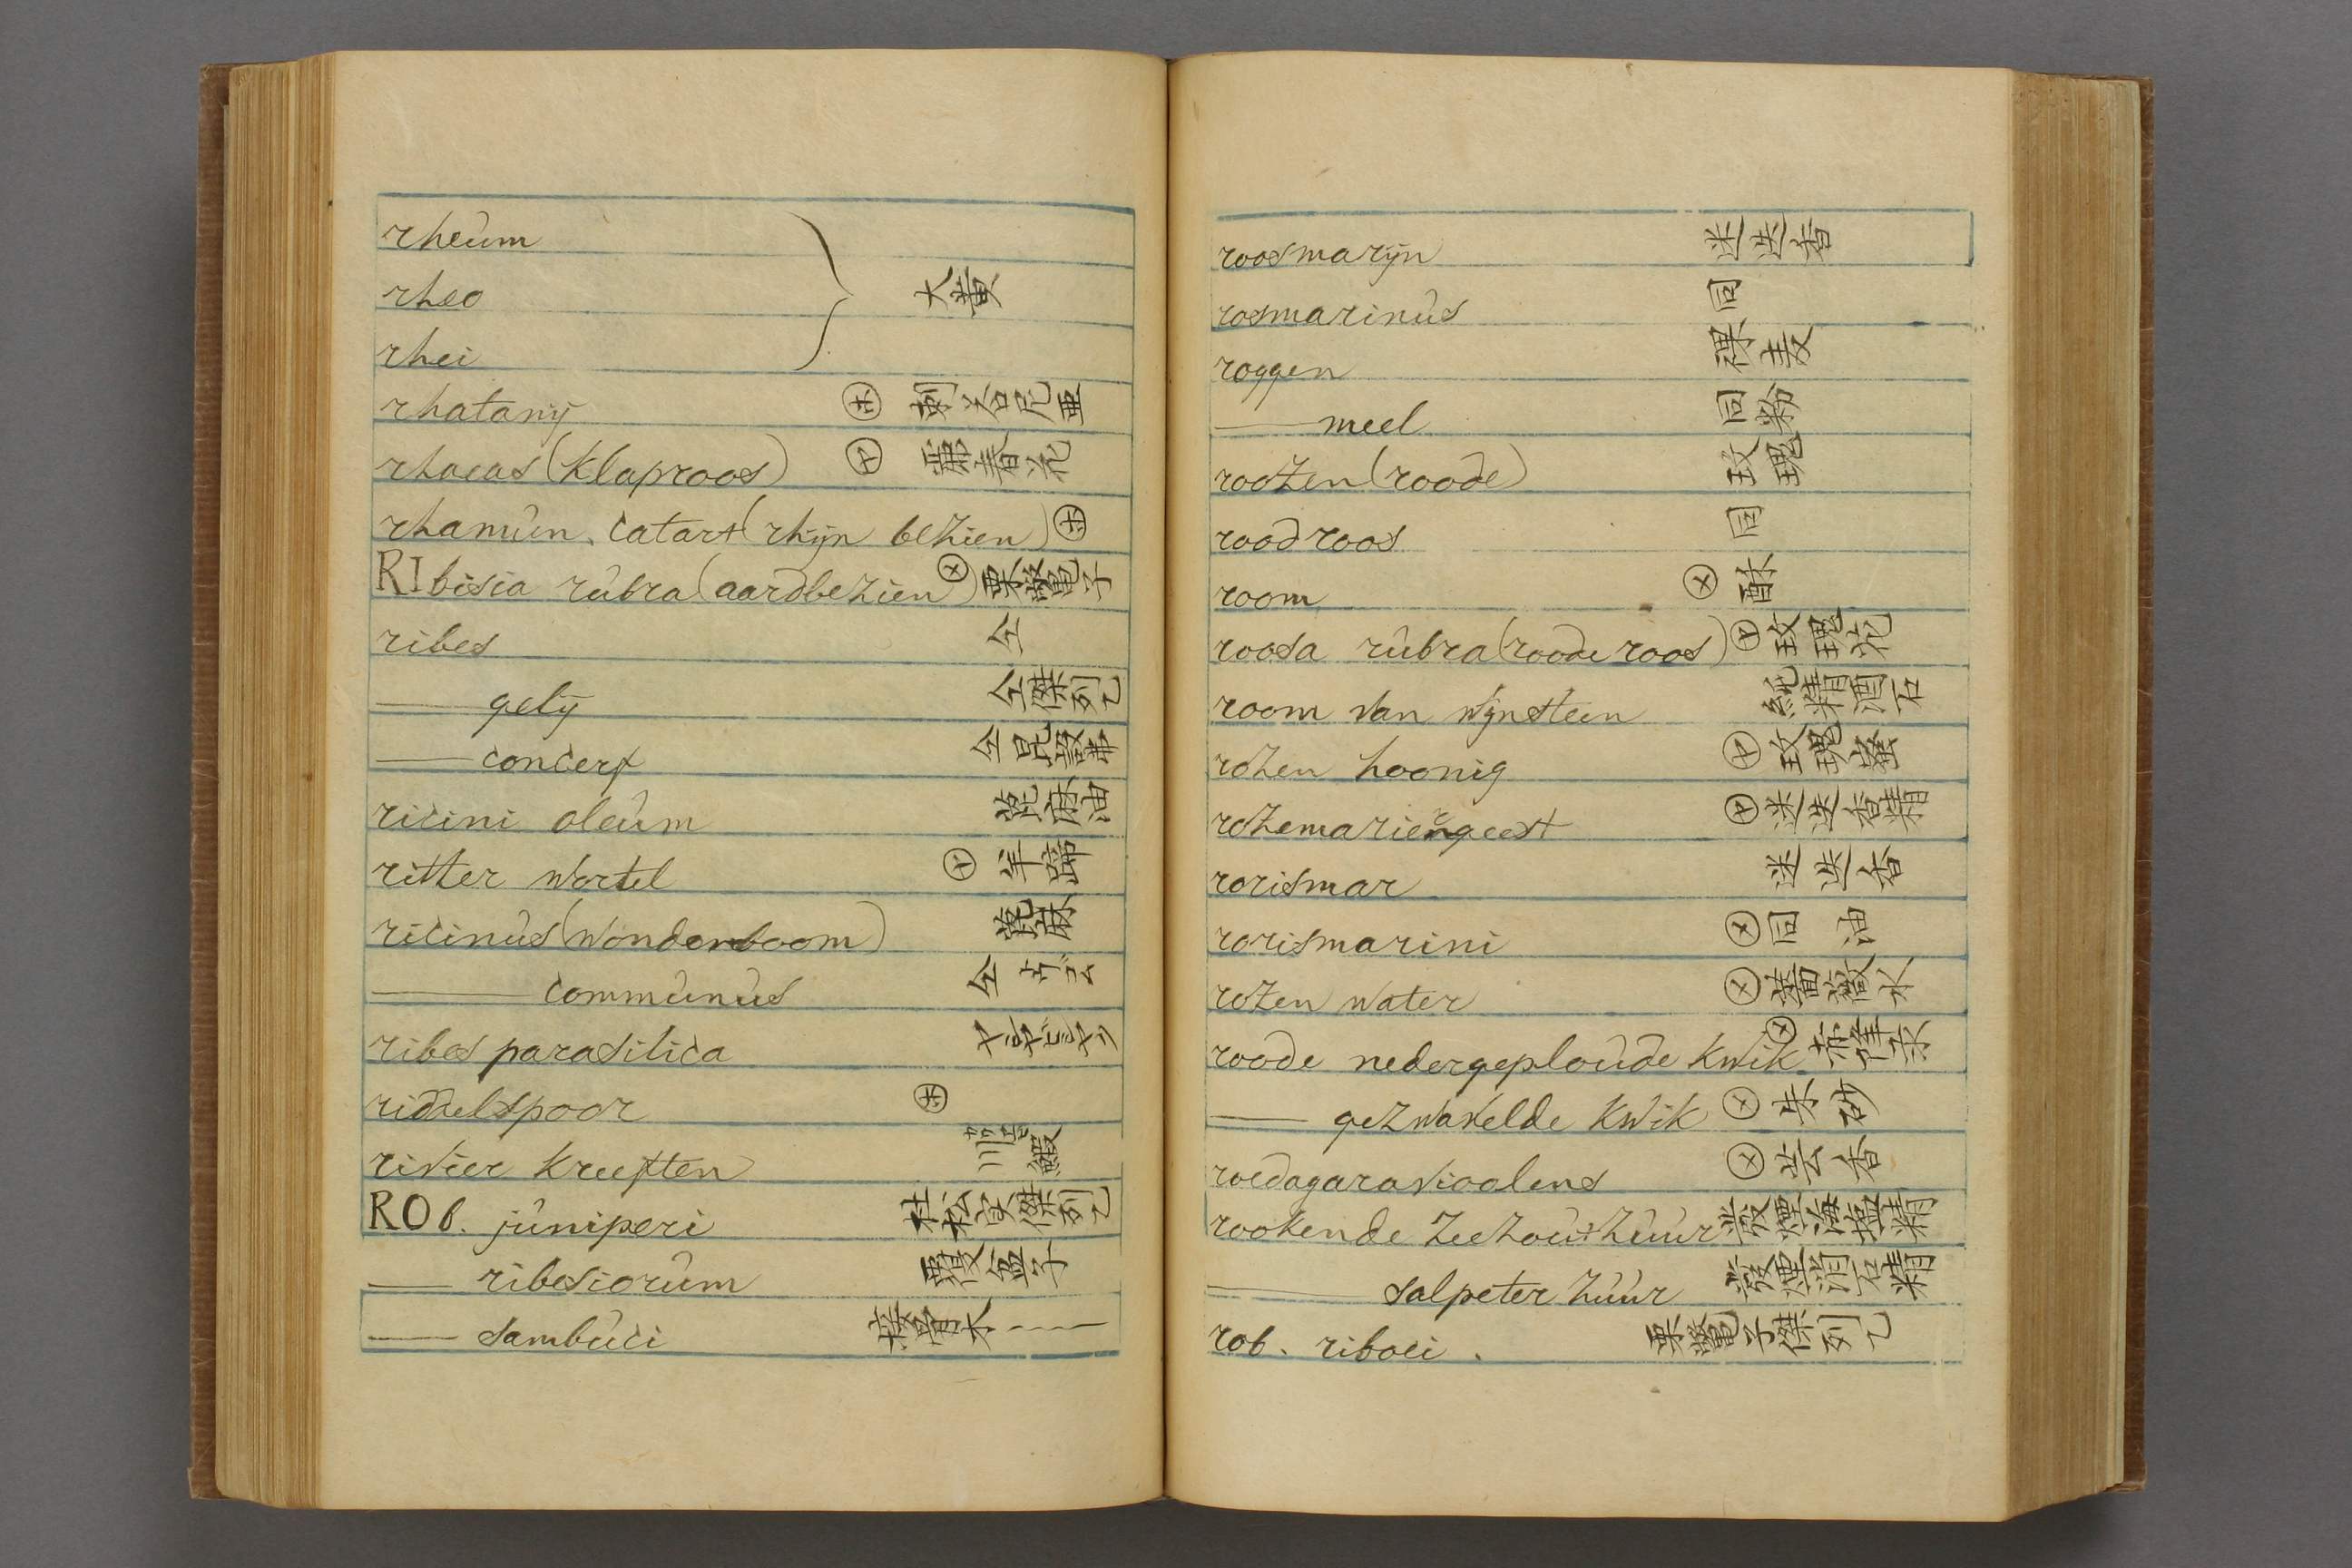 rheum
rheo 大黄
rhei
rhatanij ㋭ 剌答尼亜
rhoeas (klaproos) ㋳ 麗春花
rhamùn. catart (rhijn bezien) ㋭
RIbisia rùbra (aardbezien) 栗鷖電子
ribes 仝
—— gelij 仝傑列乙
—— concerf 仝昆設弗
ricini oleùm 萞麻油
ritter wortel ㋳ 羊蹄
ricinùs (wonderboom) 萞麻
—— commùnùs 仝
ribes parasitica ヤシャビシャク
riddelspoor ㋭
rivier kreeften 川鰕
ROb. jùniperi 杜松実傑列乙
—— ribesiorùm 覆盆子
—— sambùci 接骨木----
roosmarijn 迷迭香
rosmarinùs 同
roggen 裸麦
—— meel 同粉
roozen (roode) 玫瑰
rood roos 同
room ㋱
roosa rùbra (roode roos) ㋳ 玫瑰花
room van wijnsteen 純精酒石
rozen hoonig ㋳ 玫瑰蜜
rozemariengeest ㋳ 迷迭香精
rorismar 迷迭香
rorismarini ㋱ 同 油
rozen water ㋱ 薔薇水
roode nedergeploùde kwik ㋱ 赤降汞
—— gezwavelde kwik ㋱ 朱砂
roedagaravioolens ㋱ 芸香
rookende zeezoùt zùùr 発煙海塩精
—— salpeter zùùr 発煙消石精
rob. riboei. 栗鷖電子傑列乙